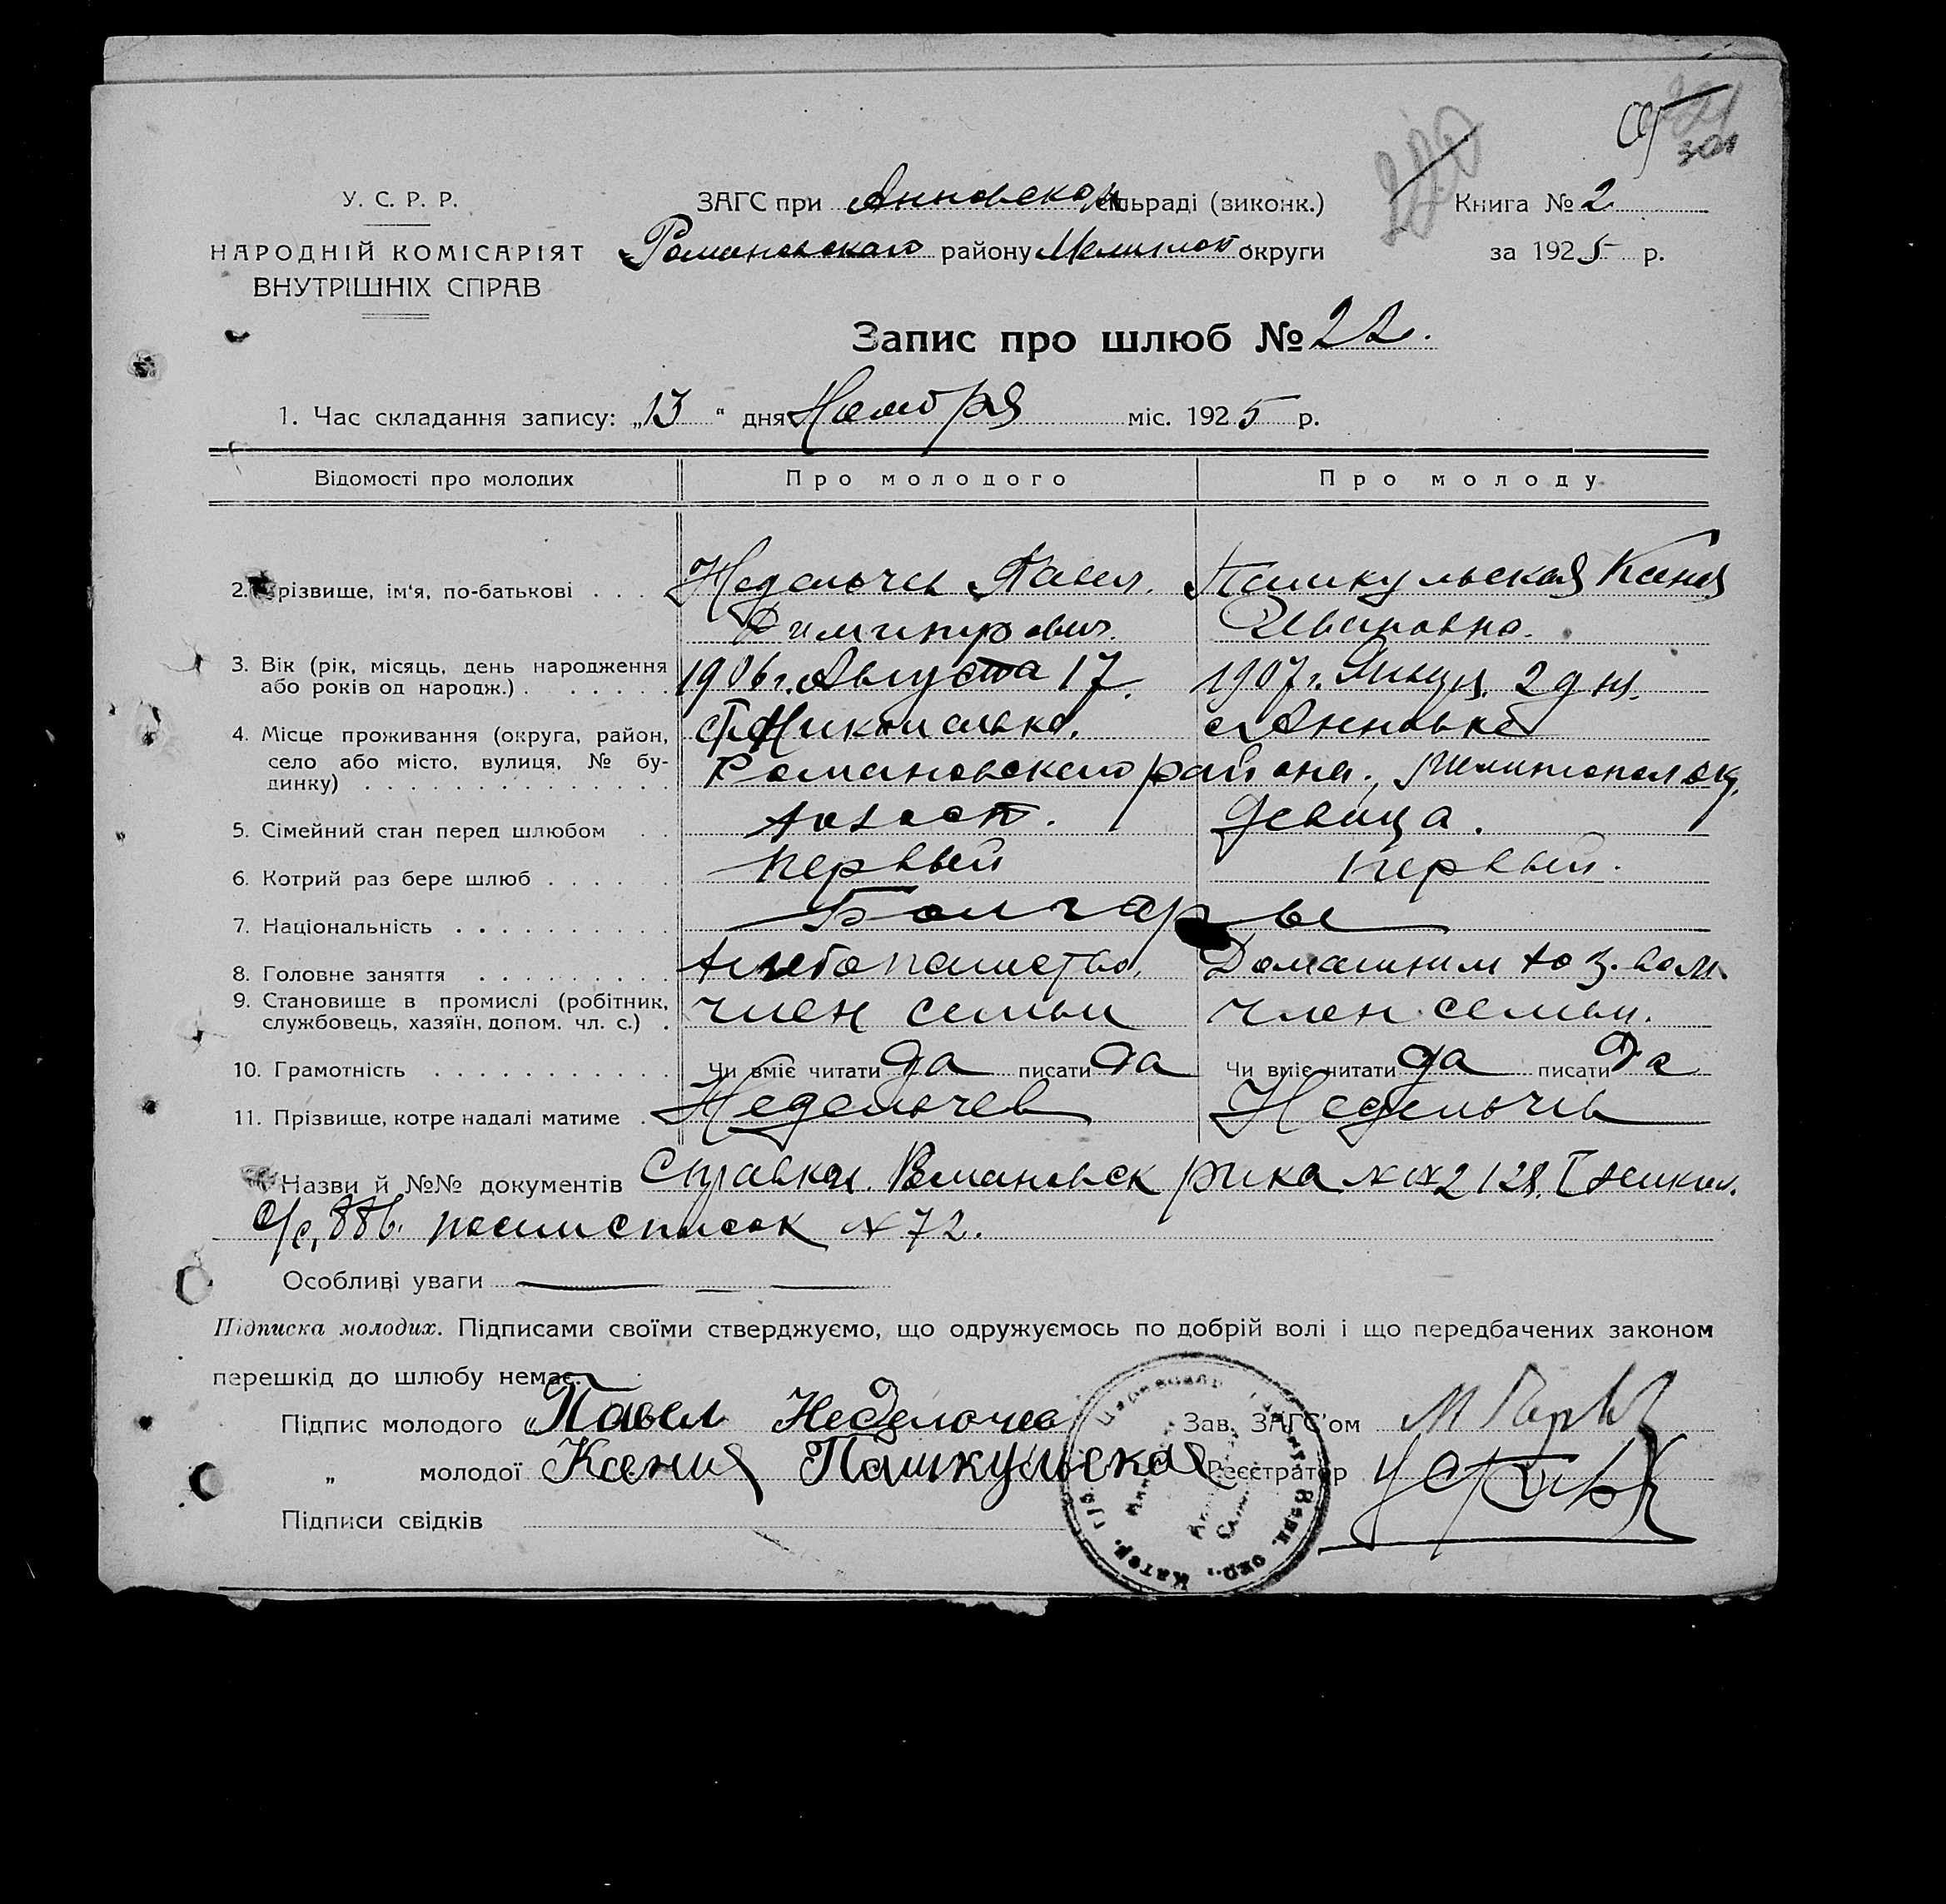 301
У. С. Р. Р.
НАРОДНІЙ КОМІСАРІЯТ
ВНУТРІШНІХ СПРАВ
ЗАГС при Анновской сільраді (виконк.)
Романовского району Мелитоп округи
Книга № 2
за 1925 р.
Запис про шлюб № 22.
1. Час складання запису: „13“ дня Ноября міс. 1925 р.
Відомості про молодих Про молодого Про молоду
2. Прізвище, ім'я, по-батькові . . . Неделчев Павел. Пашкульская Ксения
Димитрович. Ивановна.
3. Вік (рік, місяць, день народження 1906 г. Августа 17. 1907 г. 2 дня.
або років од народж.) . . . . . .
4. Місце проживання (округа, район, Николаевка. с. Анновка
село або місто, вулиця, № бу- Романовского района, Мелитопол. окр.
динку) . . . . . . . . . . . . . .
5. Сімейний стан перед шлюбом . . холост. девица.
6. Котрий раз бере шлюб . . . . . . первый первый.
7. Національність . . . . . . . . . Болгары
8. Головне заняття . . . . . . . . Хлебопашество. Домашним хоз-вом.
9. Становище в промислі (робітник, член семьи член семьи.
службовець, хазяїн, допом. чл. с.) .
10. Грамотність . . . . . . . . . . . Чи вміє читати да писати да Чи вміє читати да писати да
11. Прізвище, котре надалі матиме . Неделючев Неделючев
Назви й №№ документів Справки
с/с, 886. посем список № 72.
Особливі уваги
Підписка молодих. Підписами своїми стверджуємо, що одружуємось по добрій волі і що передбачених законом
перешкід до шлюбу немає.
Підпис молодого Павел Неделючев Зав. ЗАГС'ом
„ молодої Ксения Пашкульская Реєстратор
Підписи свідків